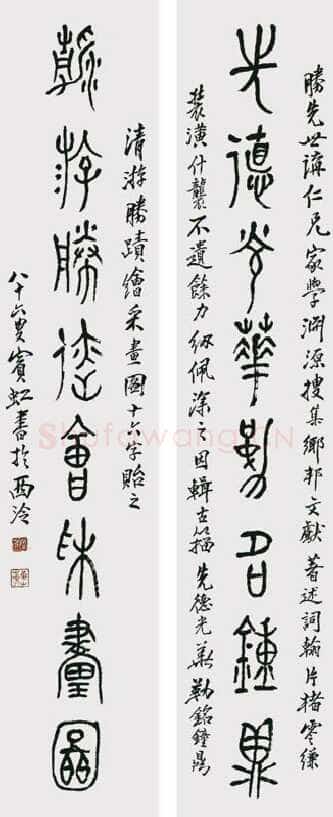 勝先世講仁兄家學淵源搜集鄉邦文獻著述詞翰片楮零縑
先德光華勒名鐘鼎
裝潢什襲不遺餘力紉佩深之因輯古籀先德光華勒銘鐘鼎
清游勝蹟繪采畫圖十六字貽之
游勝會采畫圖
八十六叟賓虹書於西泠
Shufawang.CN